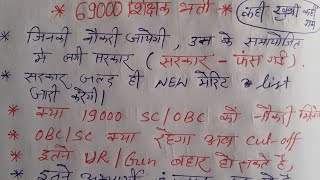 * 69000 शिक्षक भर्ती * (कहीं खुशी कहीं गम
* जिनकी नौकरी जायेगी, उस के समायोजित
में लगी सरकार ( सरकार - फंस गई.)
* सरकार जल्द ही NEW मेरिट list
जारी करेगी।
* क्या 19000 SC/OBC को नौकरी
* OBC/SC क्या रहेगा अब cut-off
* इतने UR/Gen बहार हो सकते है,
* इतने